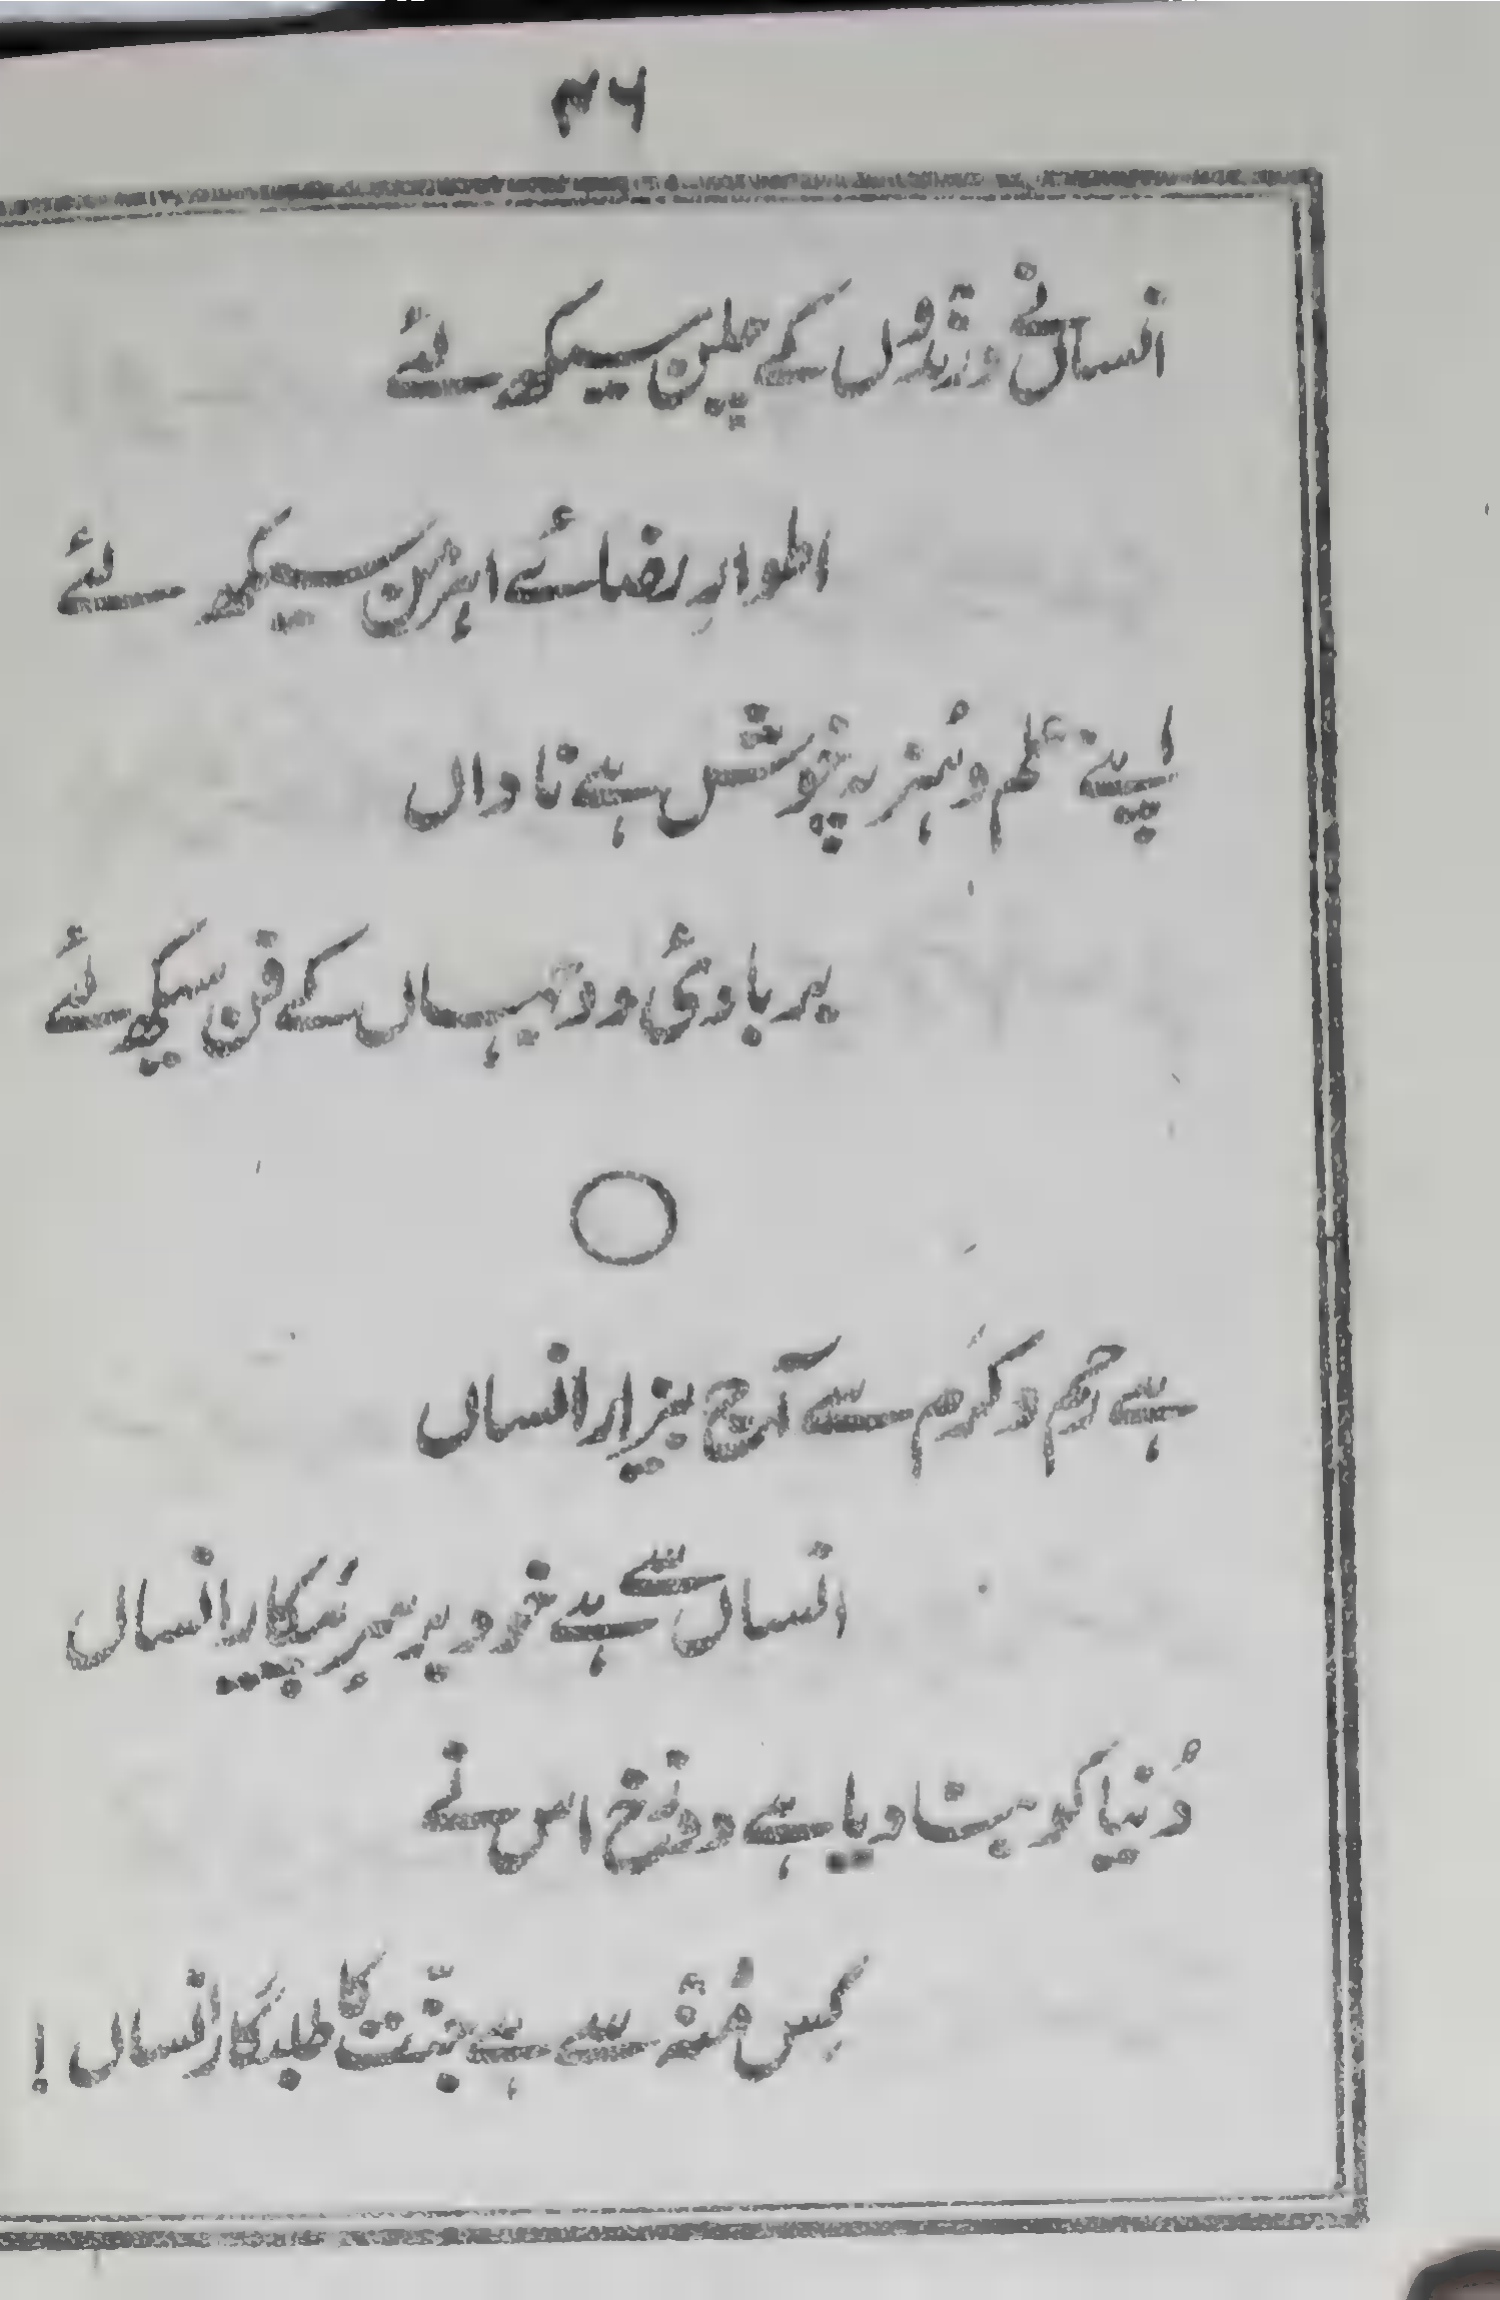 ۴۶
انساں نے درندوں کے چلن سیکھ لئے
اطوارِ رضائے اہرمن سیکھ لئے
اپنے علم و ہُنر پہ خوش ہے ناداں
بربادیٔ دو جہاں کے فن سیکھ لئے
ہے رحم و کرَم سے آج بیزار انساں
انساں سے ہے خود برسرِ پیکار انساں
دُنیا کو بنا دیا ہے دوزخ اس نے
کِس مُنہ سے ہے جنّت کا طلبگار انساں!